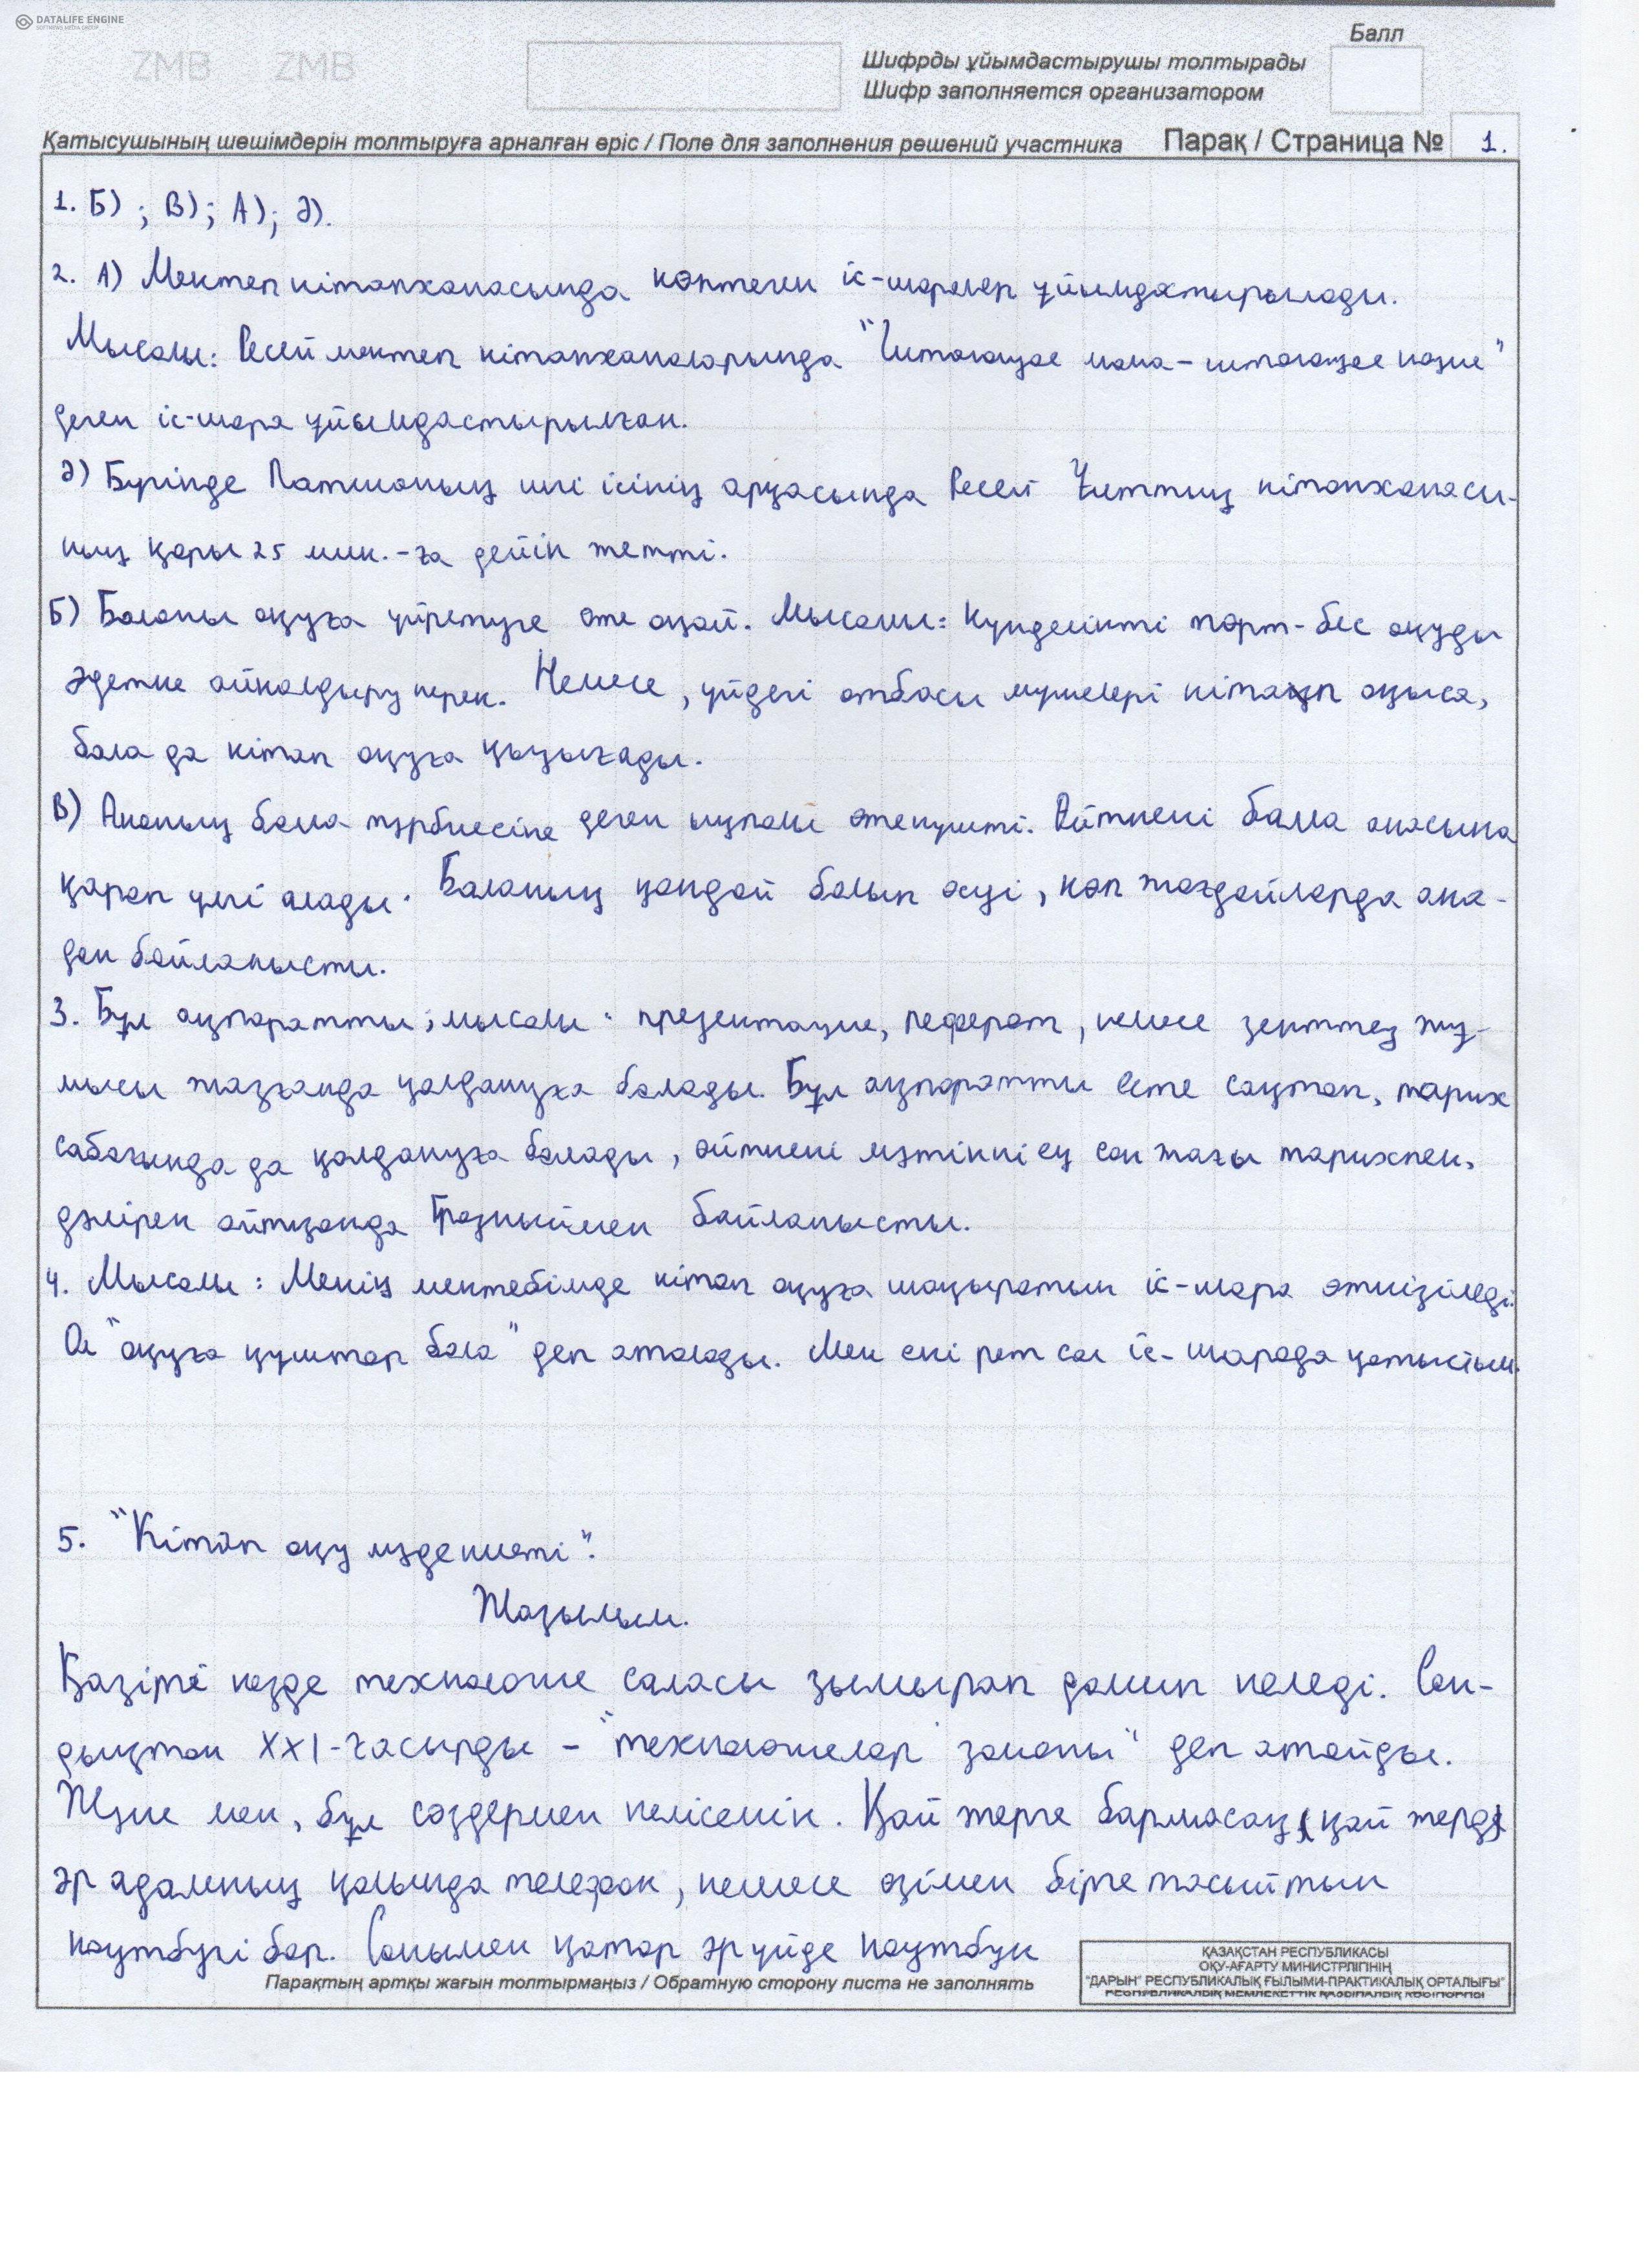 DATALIFE ENGINE
SOFTNEWS MEDIA GROUP
Балл
ZMB ZMB
Шифрды ұйымдастырушы толтырады
Шифр заполняется организатором
Қатысушының шешімдерін толтыруға арналған өріс / Поле для заполнения решений участника Парақ / Страница № 1.
1. Б) ; В) ; А) ; Ә).
2. А) Мектеп кітапханасында көптеген іс-шаралар ұйымдастырылады.
Мысалы: Ресей мектеп кітапханаларында "Читающая мама - читающая нация"
деген іс-шара ұйымдастырылған.
Ә) Бүгінде Патшаның игі ісінің арқасында Ресей кітапханасы-
ның қоры 25 млн.-ға дейін жетті.
Б) Баланы оқуға үйретуге өте оңай. Мысалы: Күнделікті төрт-бес оқуды
әдетке айналдыру керек. Немесе, үйдегі отбасы мүшелері кітап оқыса,
бала да кітап оқуға қызығады.
В) Ананың бала тәрбиесіне деген ықпалы өте күшті. Өйткені бала анасына
қарап үлгі алады. Баланың қандай болып өсуі, көп жағдайларда ана-
дан байланысты.
3. Бұл ақпаратты; мысалы: презентация, реферат, немесе зерттеу жұ-
мысы жазғанда қолдануға болады. Бұл ақпаратты есте сақтап, тарих
сабағында да қолдануға болады, өйткені мәтіннің ең соң жағы тарихпен,
дәлірек айтқанда Грозныймен байланысты.
4. Мысалы: Менің мектебімде кітап оқуға шақыратын іс-шара өткізіледі.
Ол "оқуға құштар бала" деп аталады. Мен екі рет сол іс-шарада қатыстым.
5. "Кітап оқу мәдениеті".
Жазылым.
Қазіргі кезде технология саласы зымырап дамып келеді. Сон-
дықтан XXI-ғасырды - "технологиялар заманы" деп атайды.
Және мен, бұл сөздермен келісемін. Қай жерге бармасаң, қай жерде
әр адамның қолында телефон, немесе өзімен бірге тасыйтын
ноутбугі бар. Сонымен қатар әр үйде ноутбук
Парақтың артқы жағын толтырмаңыз / Обратную сторону листа не заполнять
ҚАЗАҚСТАН РЕСПУБЛИКАСЫ
ОҚУ-АҒАРТУ МИНИСТРЛІГІНІҢ
"ДАРЫН" РЕСПУБЛИКАЛЫҚ ҒЫЛЫМИ-ПРАКТИКАЛЫҚ ОРТАЛЫҒЫ"
РЕСПУБЛИКАЛЫҚ МЕМЛЕКЕТТІК ҚАЗЫНАЛЫҚ КӘСІПОРНЫ